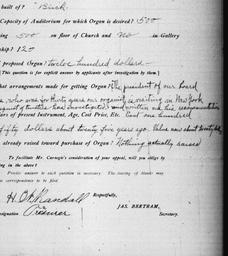 built of? " Brick.
Capacity of Auditorium for which Organ is desired? 500
500 on floor of Church and no in Gallery
ship? 120
proposed Organ? twelve hundred dollars
(This question is for explicit answer by applicants after investigation by them.)
hat arrangements made for getting Organ? The president of our board
who was for thirty years our organist is visiting in New York
iculars of present Instrument, Age, Cost Price, Etc. Cost one hundred
fifty dollars about twenty five years ago. Value now about twenty five
already raised toward purchase of Organ? Nothing actually raised
To facilitate Mr. Carnegie's consideration of your appeal, will you oblige by
ing in the above?
Precise answer to each question is necessary. The issuing of blanks may
correspondence to be filed.
Respectfully,
H. O. Randall
JAS. BERTRAM,
signation Treasurer
Secretary.